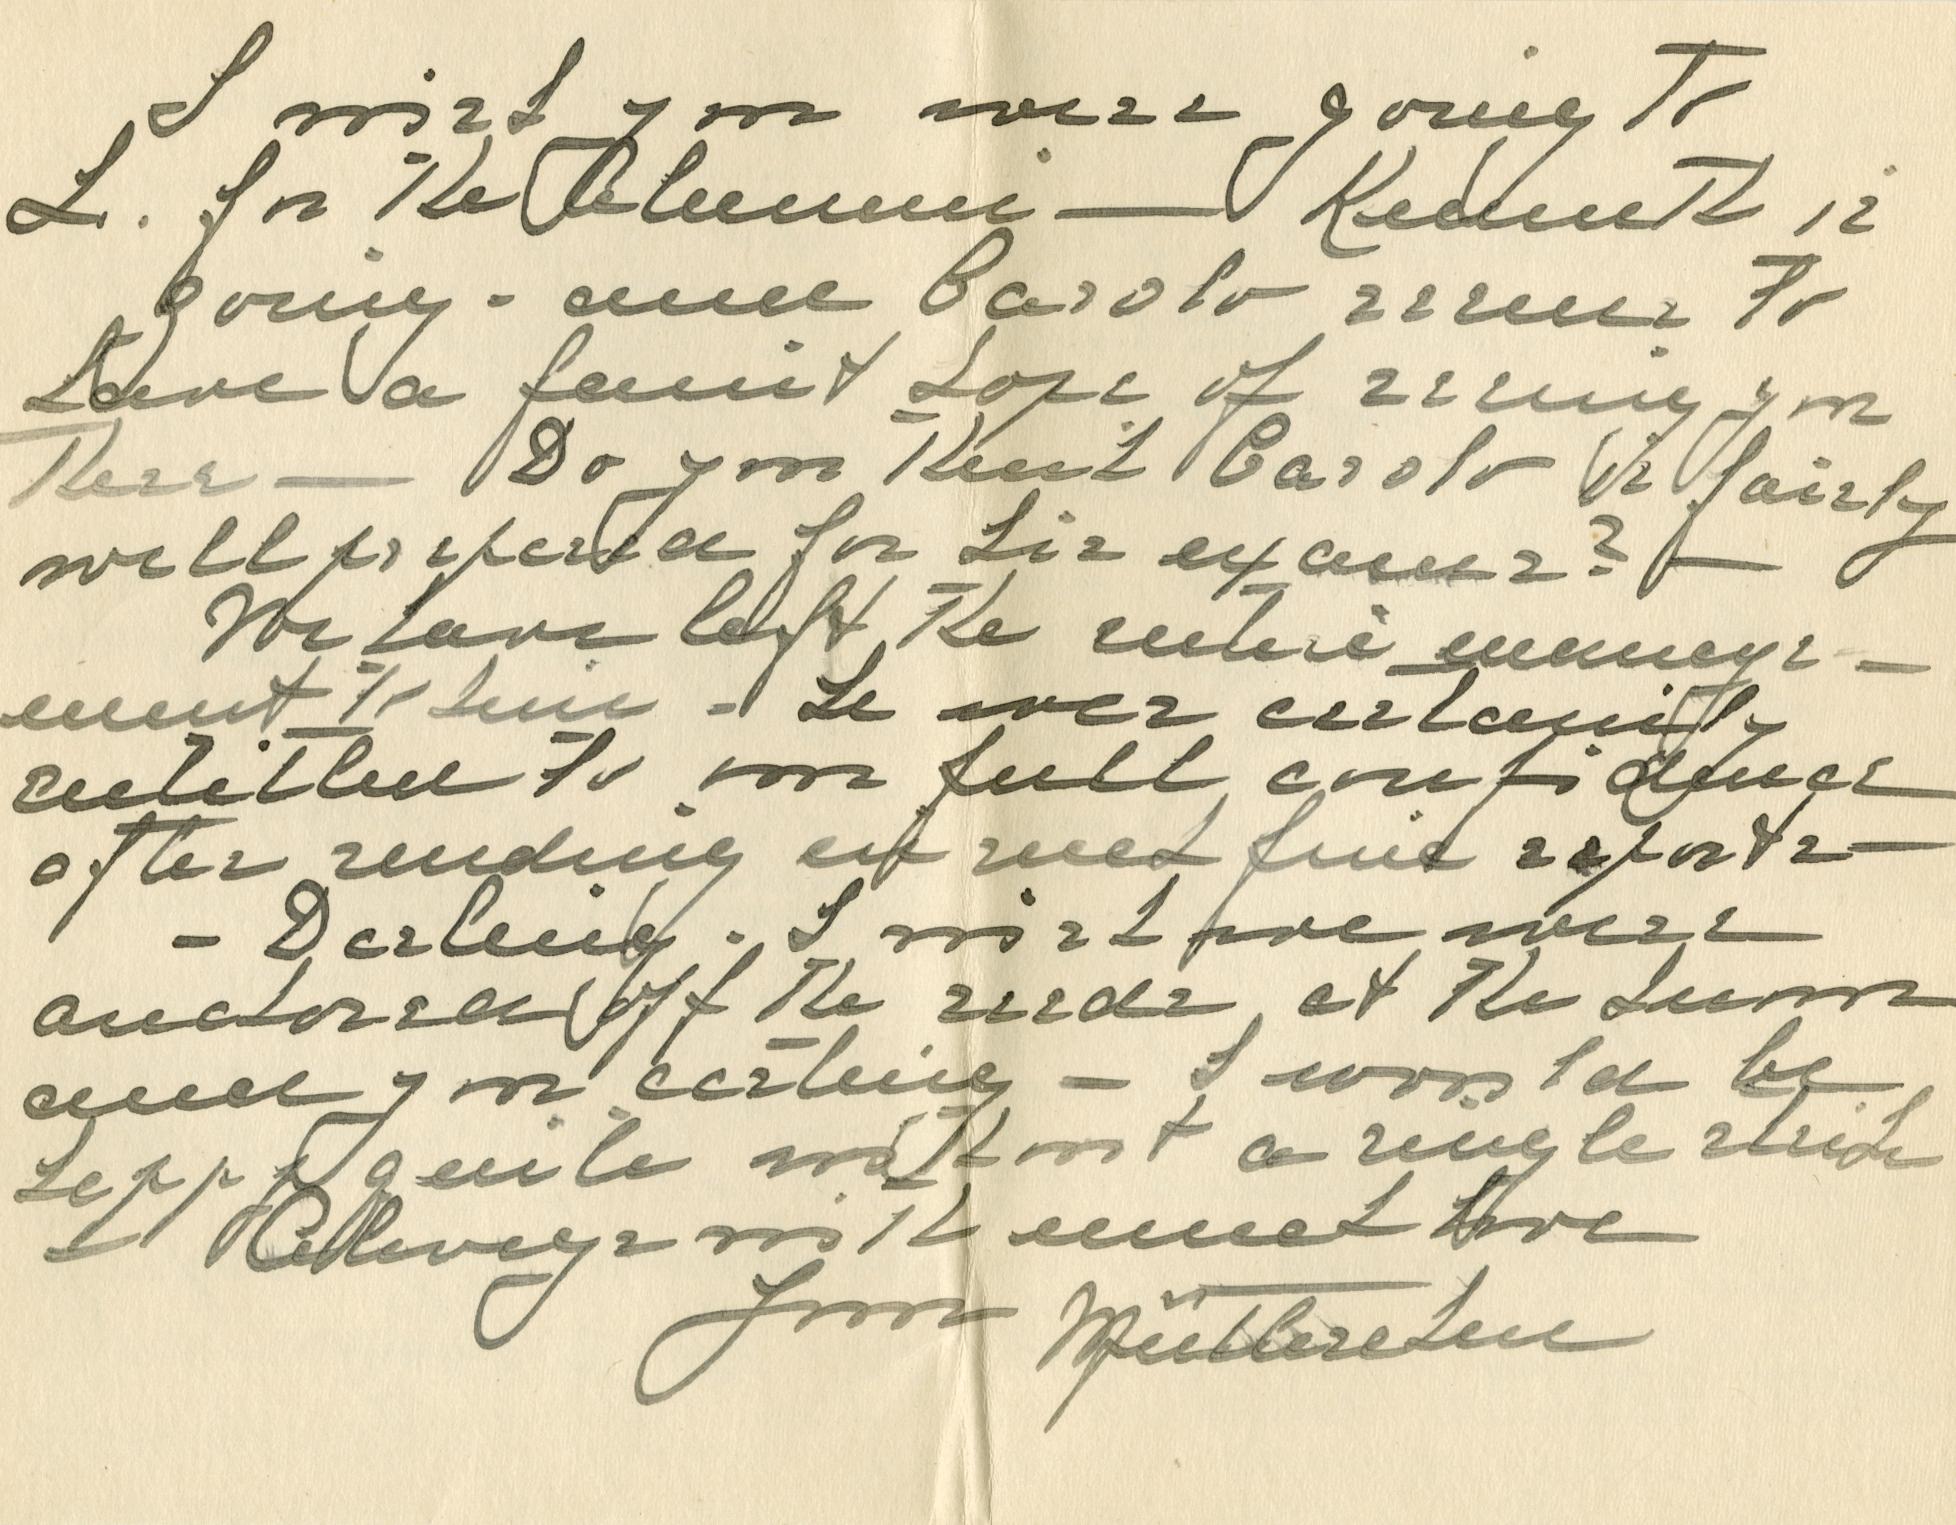 I wish you were going to
L. for the Alumni — Kenneth is
going - and Carolo seems to
have a faint hope of seeing you
there — Do you think Carolo is fairly
well prepared for his exams? —
We have left the entire manage-
ment to him - he was certainly
entitled to our full confidence
after sending us such fine reports —
- Darling - I wish we were
anchored off the reeds, at the Huron
and you casting - I would be
happy quite without a single strike
- Always with much love
Your Mütterchen